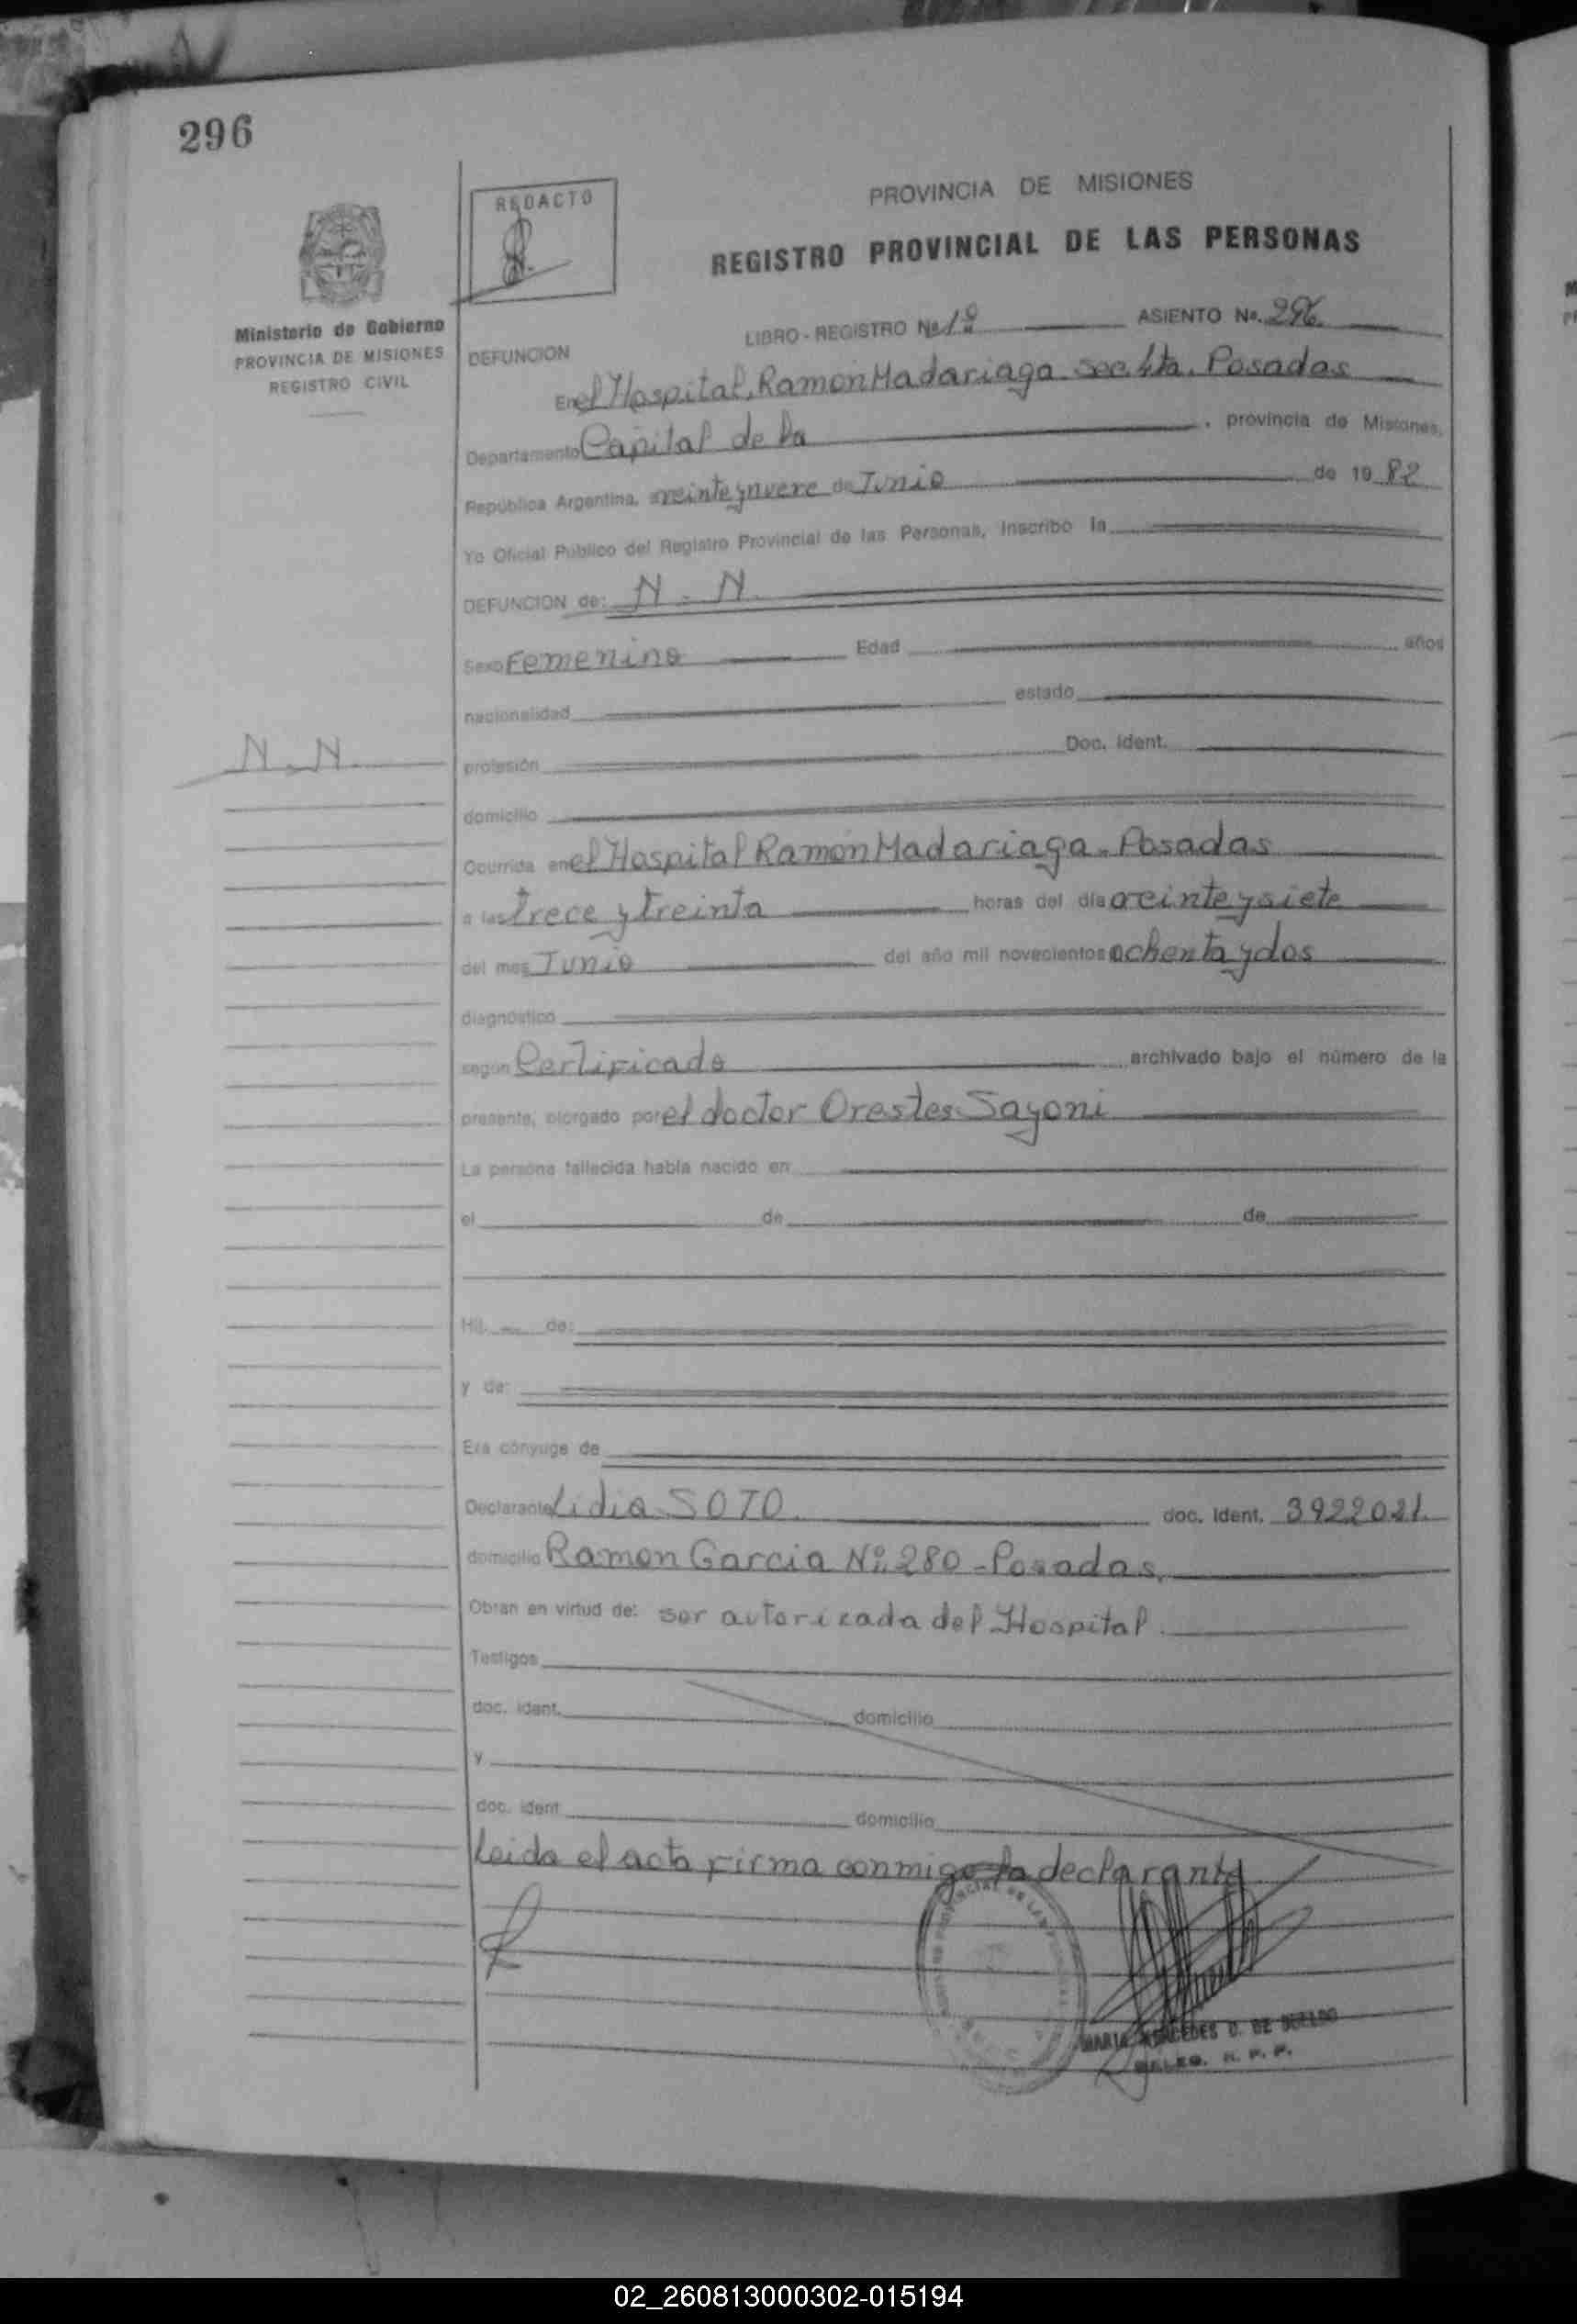 296
REDACTO
PROVINCIA DE MISIONES
REGISTRO PROVINCIAL DE LAS PERSONAS
Ministerio de Gobierno
PROVINCIA DE MISIONES
REGISTRO CIVIL
LIBRO - REGISTRO No 1º ASIENTO No. 296
DEFUNCION
En el Hospital, Ramon Madariaga sec. 4ta. Posadas
Departamento Capital de la , provincia de Misiones,
República Argentina, a veinte y nueve de Junio de 19 82
Yo Oficial Público del Registro Provincial de las Personas, Inscribo la
DEFUNCION de: N - N.
Sexo Femenino Edad años
nacionalidad estado
N.N.
profesión Doc. Ident.
domicilio
Ocurrida en el Hospital Ramon Madariaga - Posadas
a las trece y treinta horas del día veinte y siete
del mes Junio del año mil novecientos ochenta y dos
diagnóstico
según Certificado archivado bajo el número de la
presente, otorgado por el doctor Orestes Sayoni
La persona fallecida había nacido en
el de de
Hij. de:
y de:
Era cónyuge de
Declarante Lidia SOTO. doc. Ident. 3922021.
domicilio Ramon Garcia Nº 280 - Posadas.
Obran en virtud de: ser autorizada del Hospital.
Testigos
doc. ident. domicilio
y
doc. ident domicilio
Leida el acta firma conmigo la declarante
MARIA MERCEDES D. DE
DELEG. R. P. P.
02_260813000302-015194